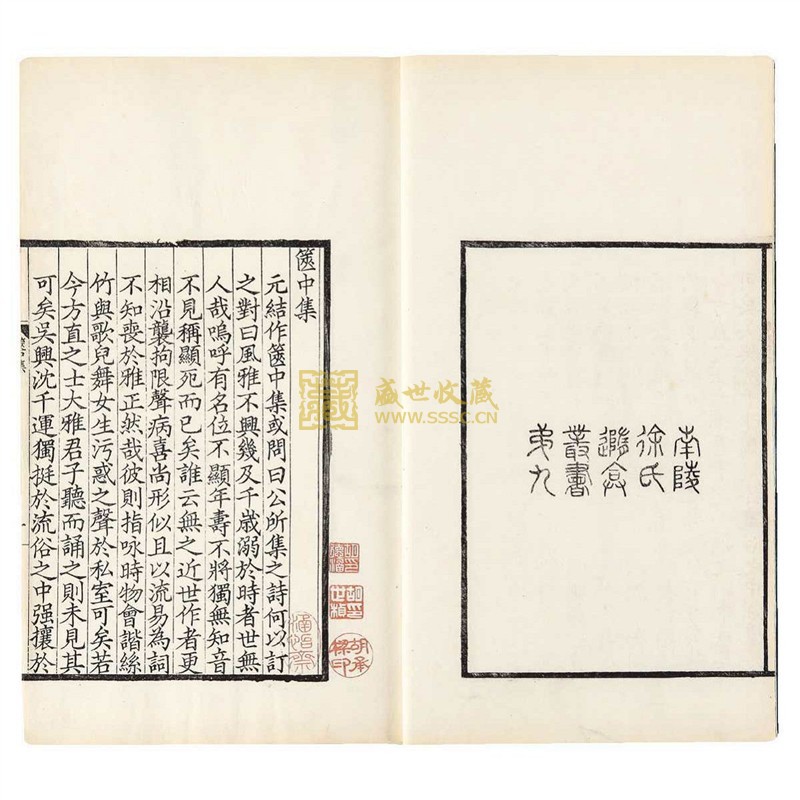 南陵
徐氏
隨盦
叢書
弟九
篋中集
元結作篋中集或問曰公所集之詩何以訂
之對曰風雅不興幾及千歲溺於時者世無
人哉嗚呼有名位不顯年壽不將獨無知音
不見稱顯死而已矣誰云無之近世作者更
相沿襲拘限聲病喜尚形似且以流易為詞
不知喪於雅正然哉彼則指咏時物會諧絲
竹與歌兒舞女生污惑之聲於私室可矣若
今方直之士大雅君子聽而誦之則未見其
可矣吳興沈千運獨挺於流俗之中强攘於
盛世收藏
WWW.SSSC.CN